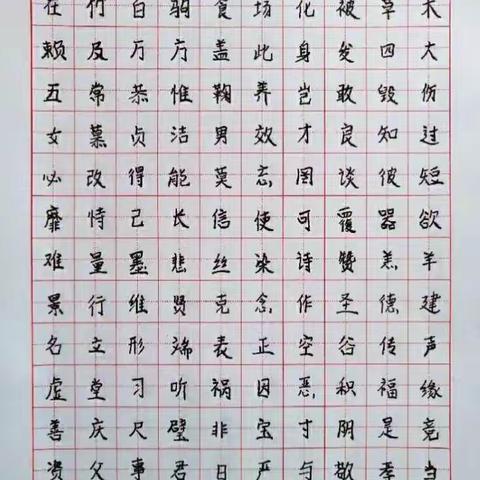 在竹白驹食场化被草木
赖及万方盖此身发四大
五常恭惟鞠养岂敢毁伤
女慕贞洁男效才良知过
必改得能莫忘罔谈彼短
靡恃己长信使可覆器欲
难量墨悲丝染诗赞羔羊
景行维贤克念作圣德建
名立形端表正空谷传声
虚堂习听祸因恶积福缘
善庆尺璧非宝寸阴是竞
资父事君曰严与敬孝当